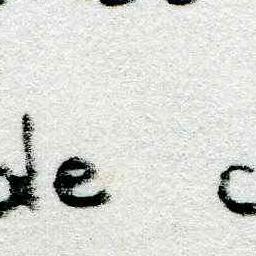 de c